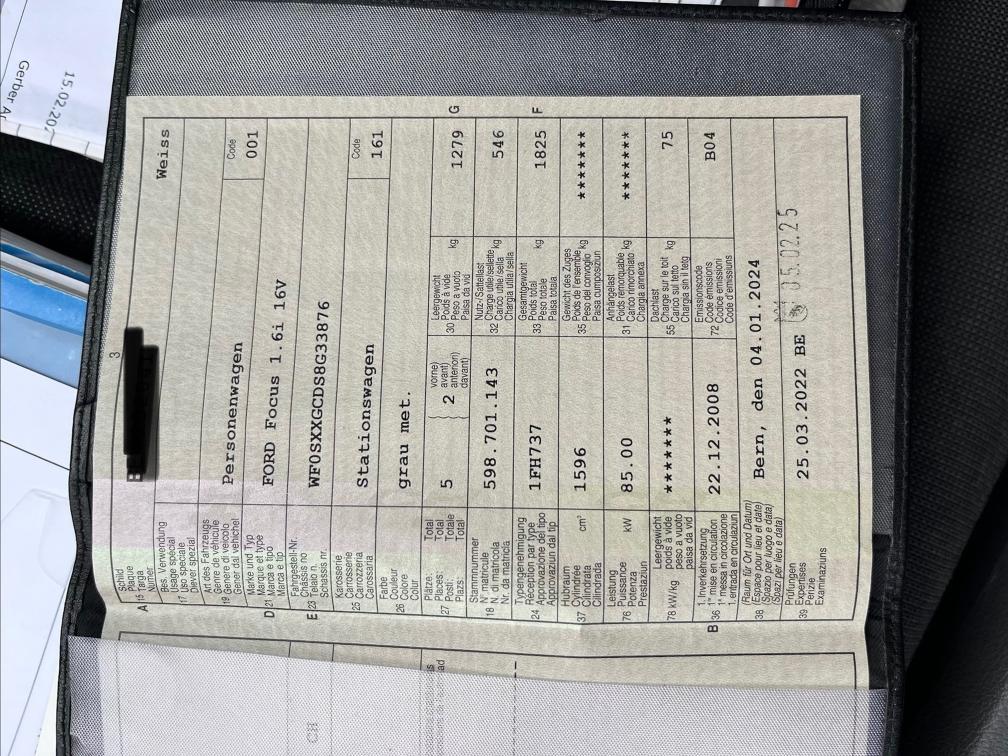 3
A 15 Schild
Plaque
Targa
Numer
Weiss
17 Bes. Verwendung
Usage spécial
Uso speciale
Diever spezial
19 Art des Fahrzeugs
Genre de véhicule
Genere di veicolo
Gener da vehichel
Personenwagen
Code
001
D 21 Marke und Typ
Marque et type
Marca e tipo
Marca e tip
FORD Focus 1.6i 16V
E 23 Fahrgestell-Nr.
Châssis no
Telaio n.
Schassis nr.
WF0SXXGCDS8G33876
25 Karosserie
Carrosserie
Carrozzeria
Carossaria
Stationswagen
Code
161
26 Farbe
Couleur
Colore
Colur
grau met.
27 Plätze:
Places:
Posti:
Plazs:
Total
Total
Totale
Total
5
2
vorne)
avant)
anteriori)
davant)
30 Leergewicht
Poids à vide
Peso a vuoto
Paisa da vid
kg
1279
G
18 Stammnummer
N° matricule
N. di matricola
Nr. da matricla
598.701.143
32 Nutz-/Sattellast
Charge utile/sellette
Carico utile/sella
Chargia utila/sella
kg
546
24 Typengenehmigung
Réception par type
Approvazione del tipo
Approvaziun dal tip
1FH737
33 Gesamtgewicht
Poids total
Peso totale
Paisa totala
kg
1825
F
37 Hubraum
Cylindrée
Cilindrata
Cilindrada
cm³
1596
35 Gewicht des Zuges
Poids de l'ensemble
Peso del convoglio
Paisa cumposiziun
kg
*******
76 Leistung
Puissance
Potenza
Prestaziun
kW
85.00
31 Anhängelast
Poids remorquable
Carico rimorchiato
Chargia annexa
kg
*******
78 kW/kg
Leergewicht
poids à vide
peso a vuoto
paisa da vid
*******
55 Dachlast
Charge sur le toit
Carico sul tetto
Chargia sin il tetg
kg
75
B 36 1. Inverkehrsetzung
1re mise en circulation
1a messa in circolazione
1. entrada en circulaziun
22.12.2008
72 Emissionscode
Code émissions
Codice emissioni
Code d'emissiuns
B04
38 (Raum für Ort und Datum)
(Espace pour lieu et date)
(Spazio per luogo e data)
(Spazi per lieu e data)
Bern, den 04.01.2024
39 Prüfungen
Expertises
Perizie
Examinaziuns
25.03.2022 BE
05.02.25
CH
15.02.20
Gerber A